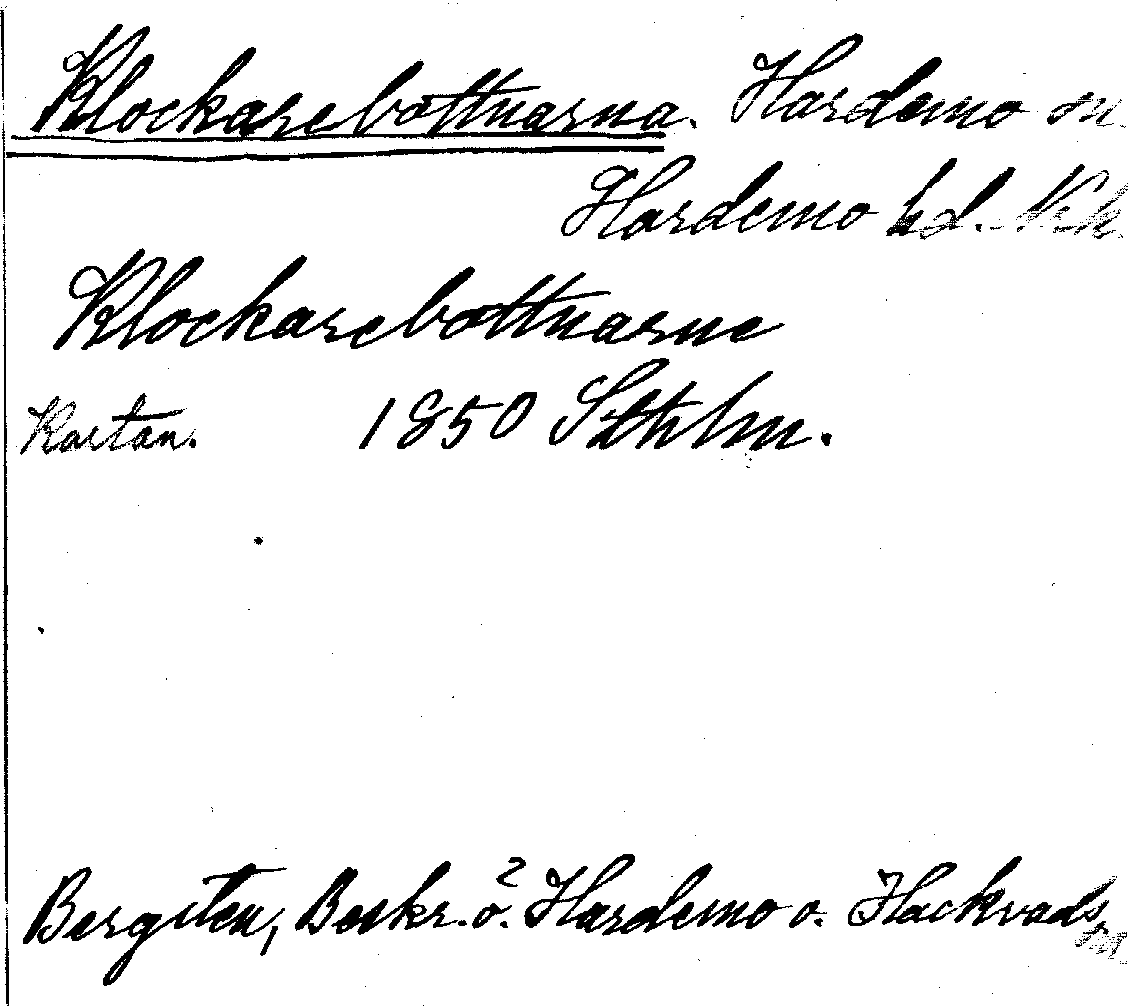 Klockarebottnarna. Hardemo sn
Hardemo hd. Nk
Klockarebottnarne
Kartan. 1850 Sthlm.
Bergsten, Beskr. ö. Hardemo o. Hackvads